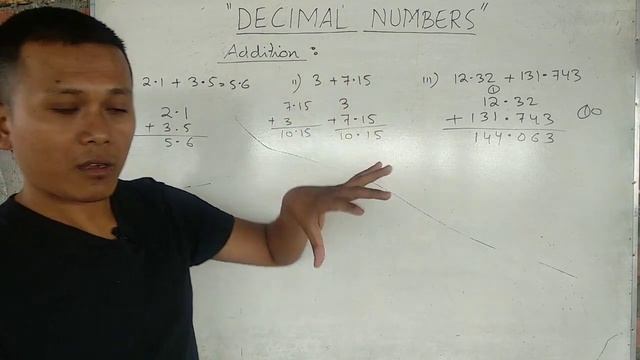 "DECIMAL NUMBERS"
Addition :
2.1 + 3.5 = 5.6
2.1
+ 3.5
5.6
ii) 3 + 7.15
7.15
+ 3
10.15
3
+ 7.15
10.15
iii) 12.32 + 131.743
1
12.32
+ 131.743
144.063
10